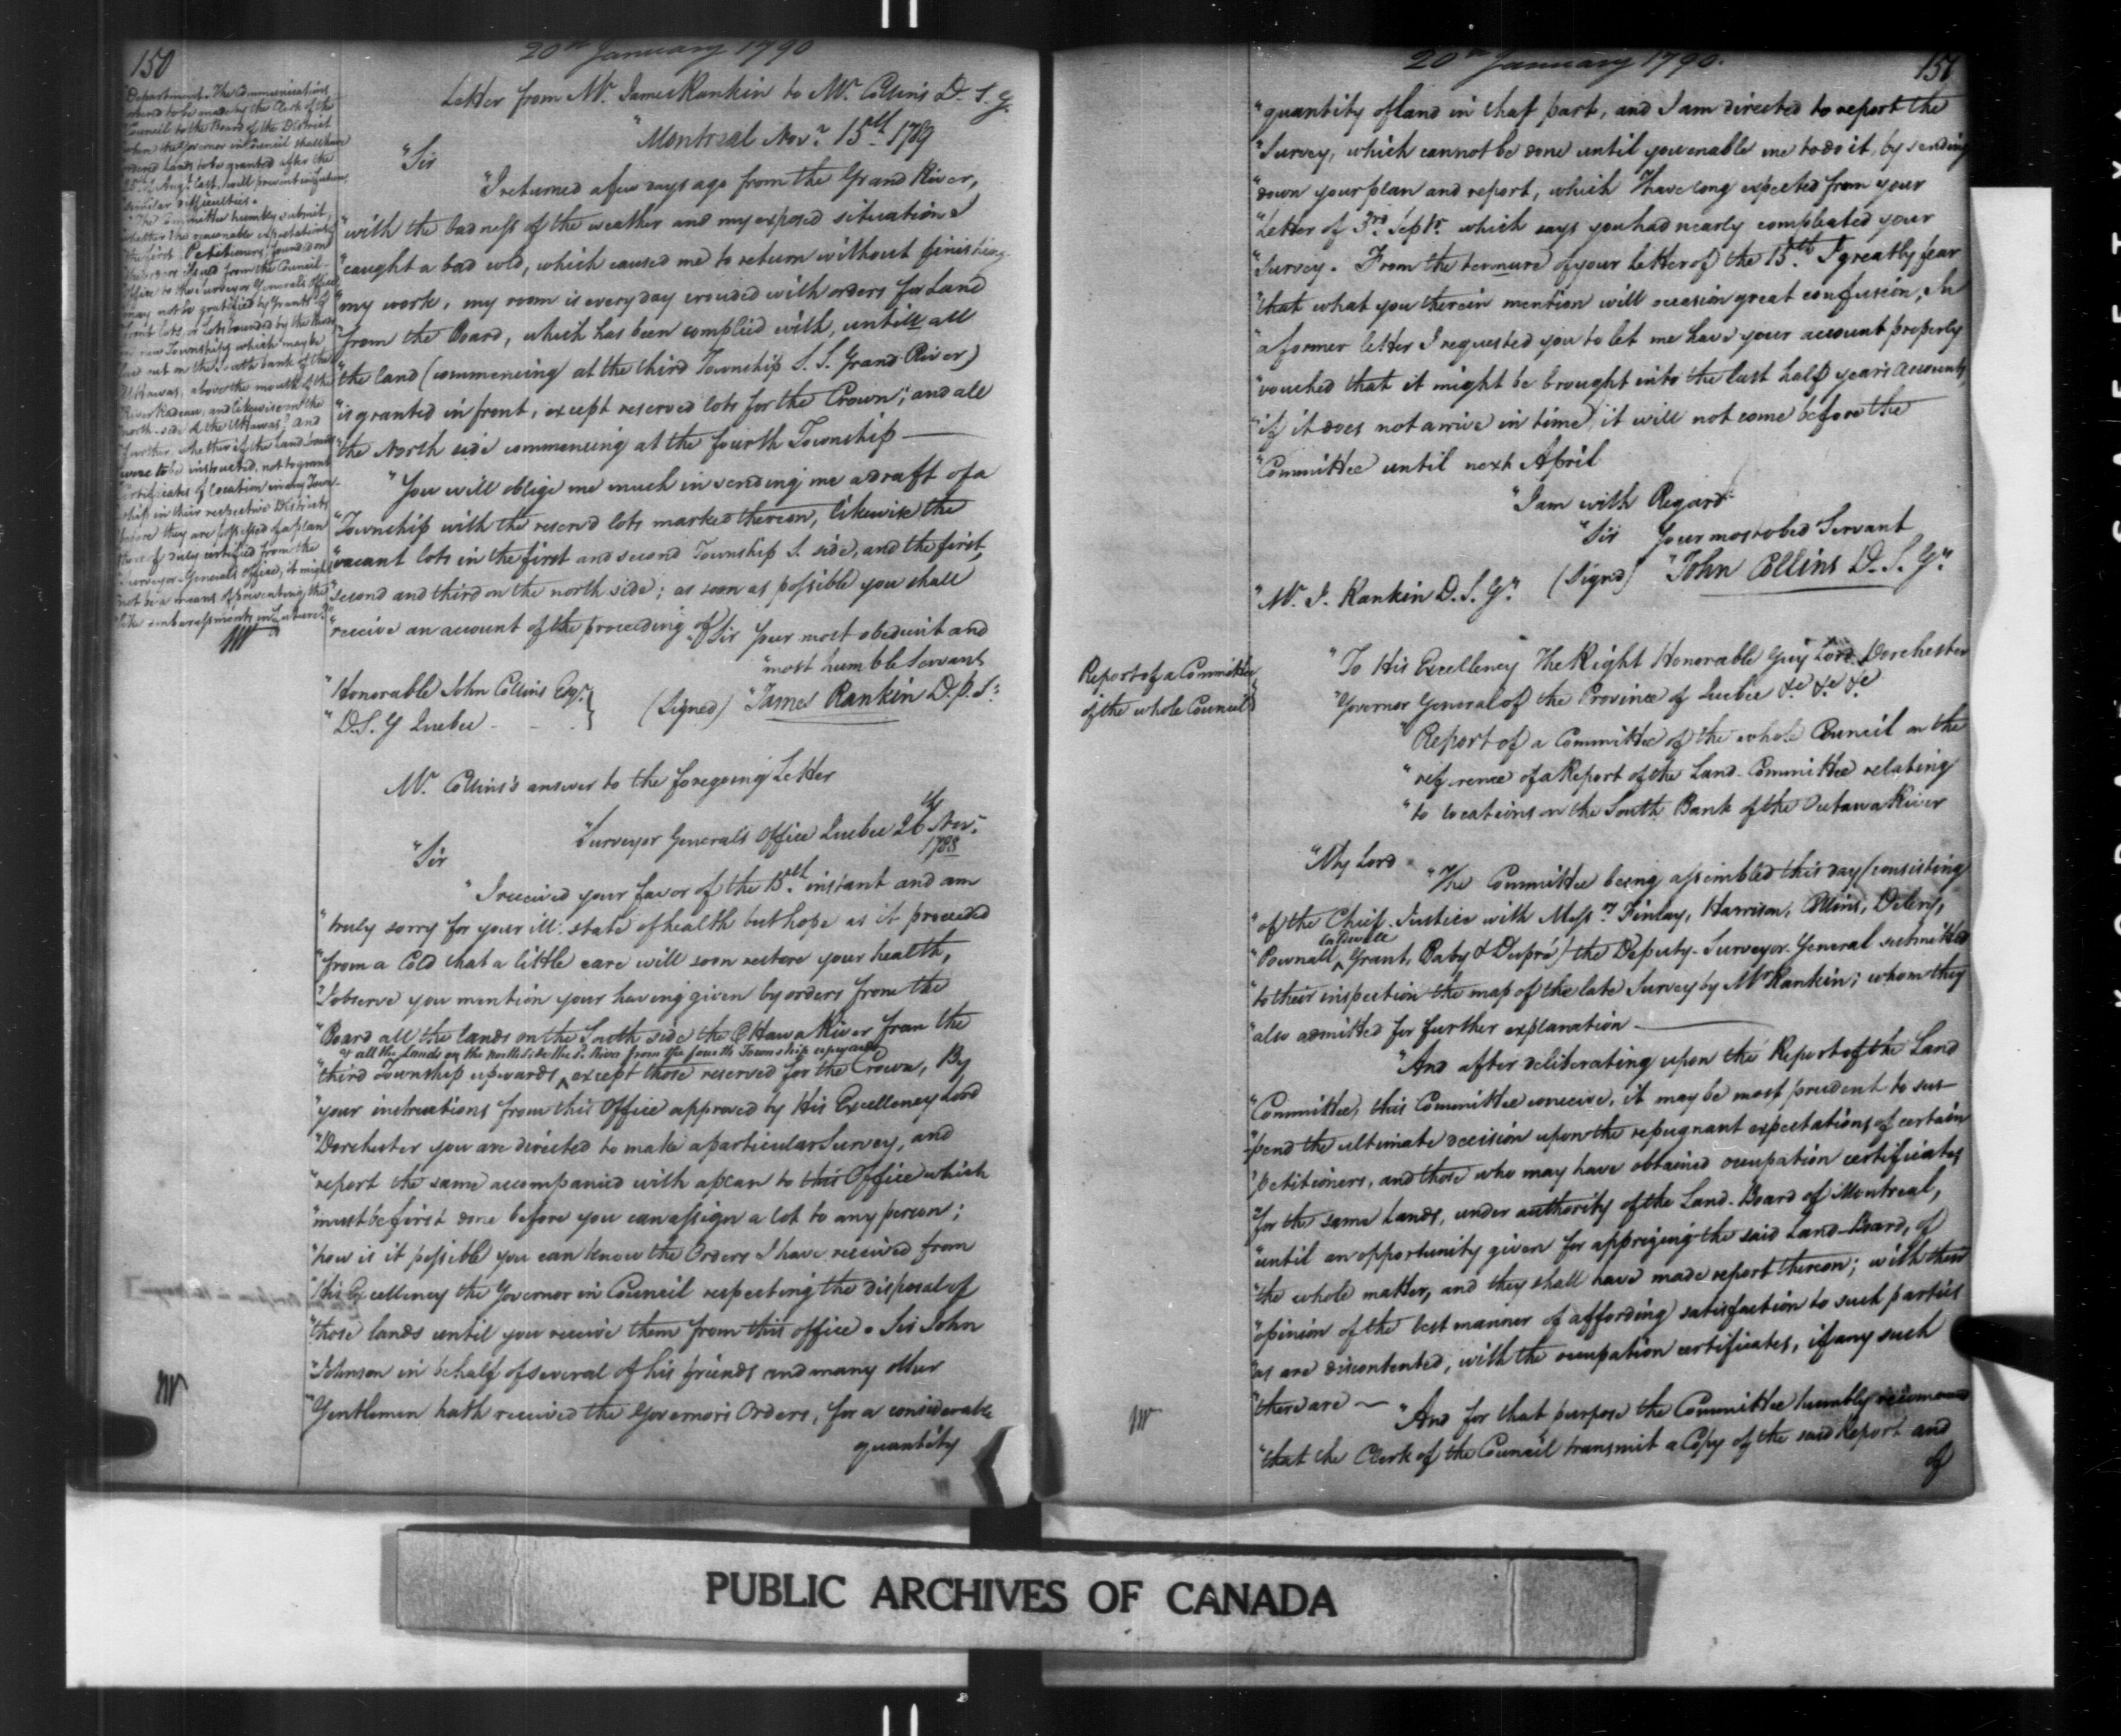 150
20th January 1790
Department. The Communications
ordered to be made by the Clerk of the
Council to the Board of the District
when the Governor in Council shall have
ordered Lands to be granted after the
25th of Augt last, will prevent in future
similar difficulties.
"The Committee humbly submit,
whether the reasonable expectations
of the first Petitioners, founded on
the orders issued from the Council
Office to the Surveyor Generals Office
may not be gratified by Grants of
front lots, or Lots bounded by the River
in new Townships which may be
laid out on the South bank of the
Uttawas, above the mouth of the
River Radeau, and likewise on the
north-side of the Uttawas? And
further, whether if the Land Boards
were to be instructed, not to grant
Certificates of location in any Town-
ship in their respective Districts
before they are possessed of a plan
thereof duly certified from the
Surveyor-Generals Office, it might
not be a means of preventing the
like embarassments in future?"
Letter from Mr. James Rankin to Mr. Collins D. S. G.
"Montreal Novr. 15th 1789
"Sir
"I returned a few days ago from the Grand River,
"with the badness of the weather and my exposed situation I
"caught a bad cold, which caused me to return without finishing
"my work, my room is every day crouded with orders for Land
"from the Board, which has been complied with, untill all
"the land (commencing at the third Township S. S. Grand River)
"is granted in front, except reserved lots for the Crown; and all
"the North side commencing at the fourth Township —
"You will oblige me much in sending me a draft of a
"Township with the reservd lots marked thereon, likewise the
"vacant lots in the first and second Township S. side, and the first,
"second and third on the north side; as soon as possible you shall
"receive an account of the proceeding of Sir Your most obedient and
"most humble Servant
"Honorable John Collins Esqr. }
(Signed) "James Rankin D. P. S.
"D. S. G Quebec - - - }
Mr. Collins's answer to the foregoing Letter
"Surveyor Generals Office Quebec 26th Novr.
1788
"Sir
"I received your favor of the 15th instant and am
"truly sorry for your ill state of health but hope as it proceeded
"from a Cold that a little care will soon restore your health,
"I observe you mention your having given by orders from the
"Board all the lands on the South side the Ottawa River from the
& all the Lands on the north side the sd. River from the fourth Township upwards
"third Township upwards ‸ except those reserved for the Crown, By
"your instructions from this Office approved by His Excellency Lord
"Dorchester you are directed to make a particular Survey, and
"report the same accompanied with a plan to this Office which
"must be first done before you can assign a lot to any person;
"how is it possible you can know the Orders I have received from
"His Excellency the Governor in Council respecting the disposal of
"those lands until you receive them from this office. Sir John
"Johnson in behalf of several of his friends and many other
"Gentlemen hath received the Governors Orders, for a considerable
quantity
20th January 1790.
151
"quantity of land in that part, and I am directed to report the
"Survey, which cannot be done until you enable me to do it, by sending
"down your plan and report, which I have long expected from your
"Letter of 3rd Septr. which says you had nearly compleated your
"Survey. From the tennure of your Letter of the 15th I greatly fear
"that what you therein mention will occasion great confusion, In
"a former letter I requested you to let me have your account properly
"vouched that it might be brought into the last half year's Accounts,
"if it does not arrive in time, it will not come before the
"Committee until next April
"I am with Regard
"Sir Your most obed Servant
(Signed) "John Collins D. S. G."
"Mr. J. Rankin D. S. G."
Report of a Committee
of the whole Council
"To His Excellency The Right Honorable Guy Lord Dorchester
"Governor General of the Province of Quebec &c &c &c
"Report of a Committee of the whole Council on the
"reference of a Report of the Land-Committee relating
"to locations on the South Bank of the Outawa River
"My Lord
"The Committee being assembled this day (consisting
"of the Chief Justice with Messrs. Finlay, Harrison, Collins, Delery,
Caldwell
"Pownall, ‸ Grant, Baby & Dupré) the Deputy-Surveyor General submitted
"to their inspection the map of the late Survey by Mr Rankin; whom they
"also admitted for further explanation —
"And after deliberating upon the Report of the Land
"Committee, this Committee conceive, it may be most prudent to sus-
"pend the ultimate decision upon the repugnant expectations of certain
"petitioners, and those who may have obtained occupation certificates
"for the same Lands, under authority of the Land-Board of Montreal,
"until an opportunity given for apprizing the said Land-Board, of
"the whole matter, and they shall have made report thereon; with their
"opinion of the best manner of affording satisfaction to such parties
"as are discontented, with the occupation certificates, if any such
"there are — "And for that purpose the Committee humbly recommend
"that the Clerk of the Council transmit a Copy of the said Report and
of
PUBLIC ARCHIVES OF CANADA